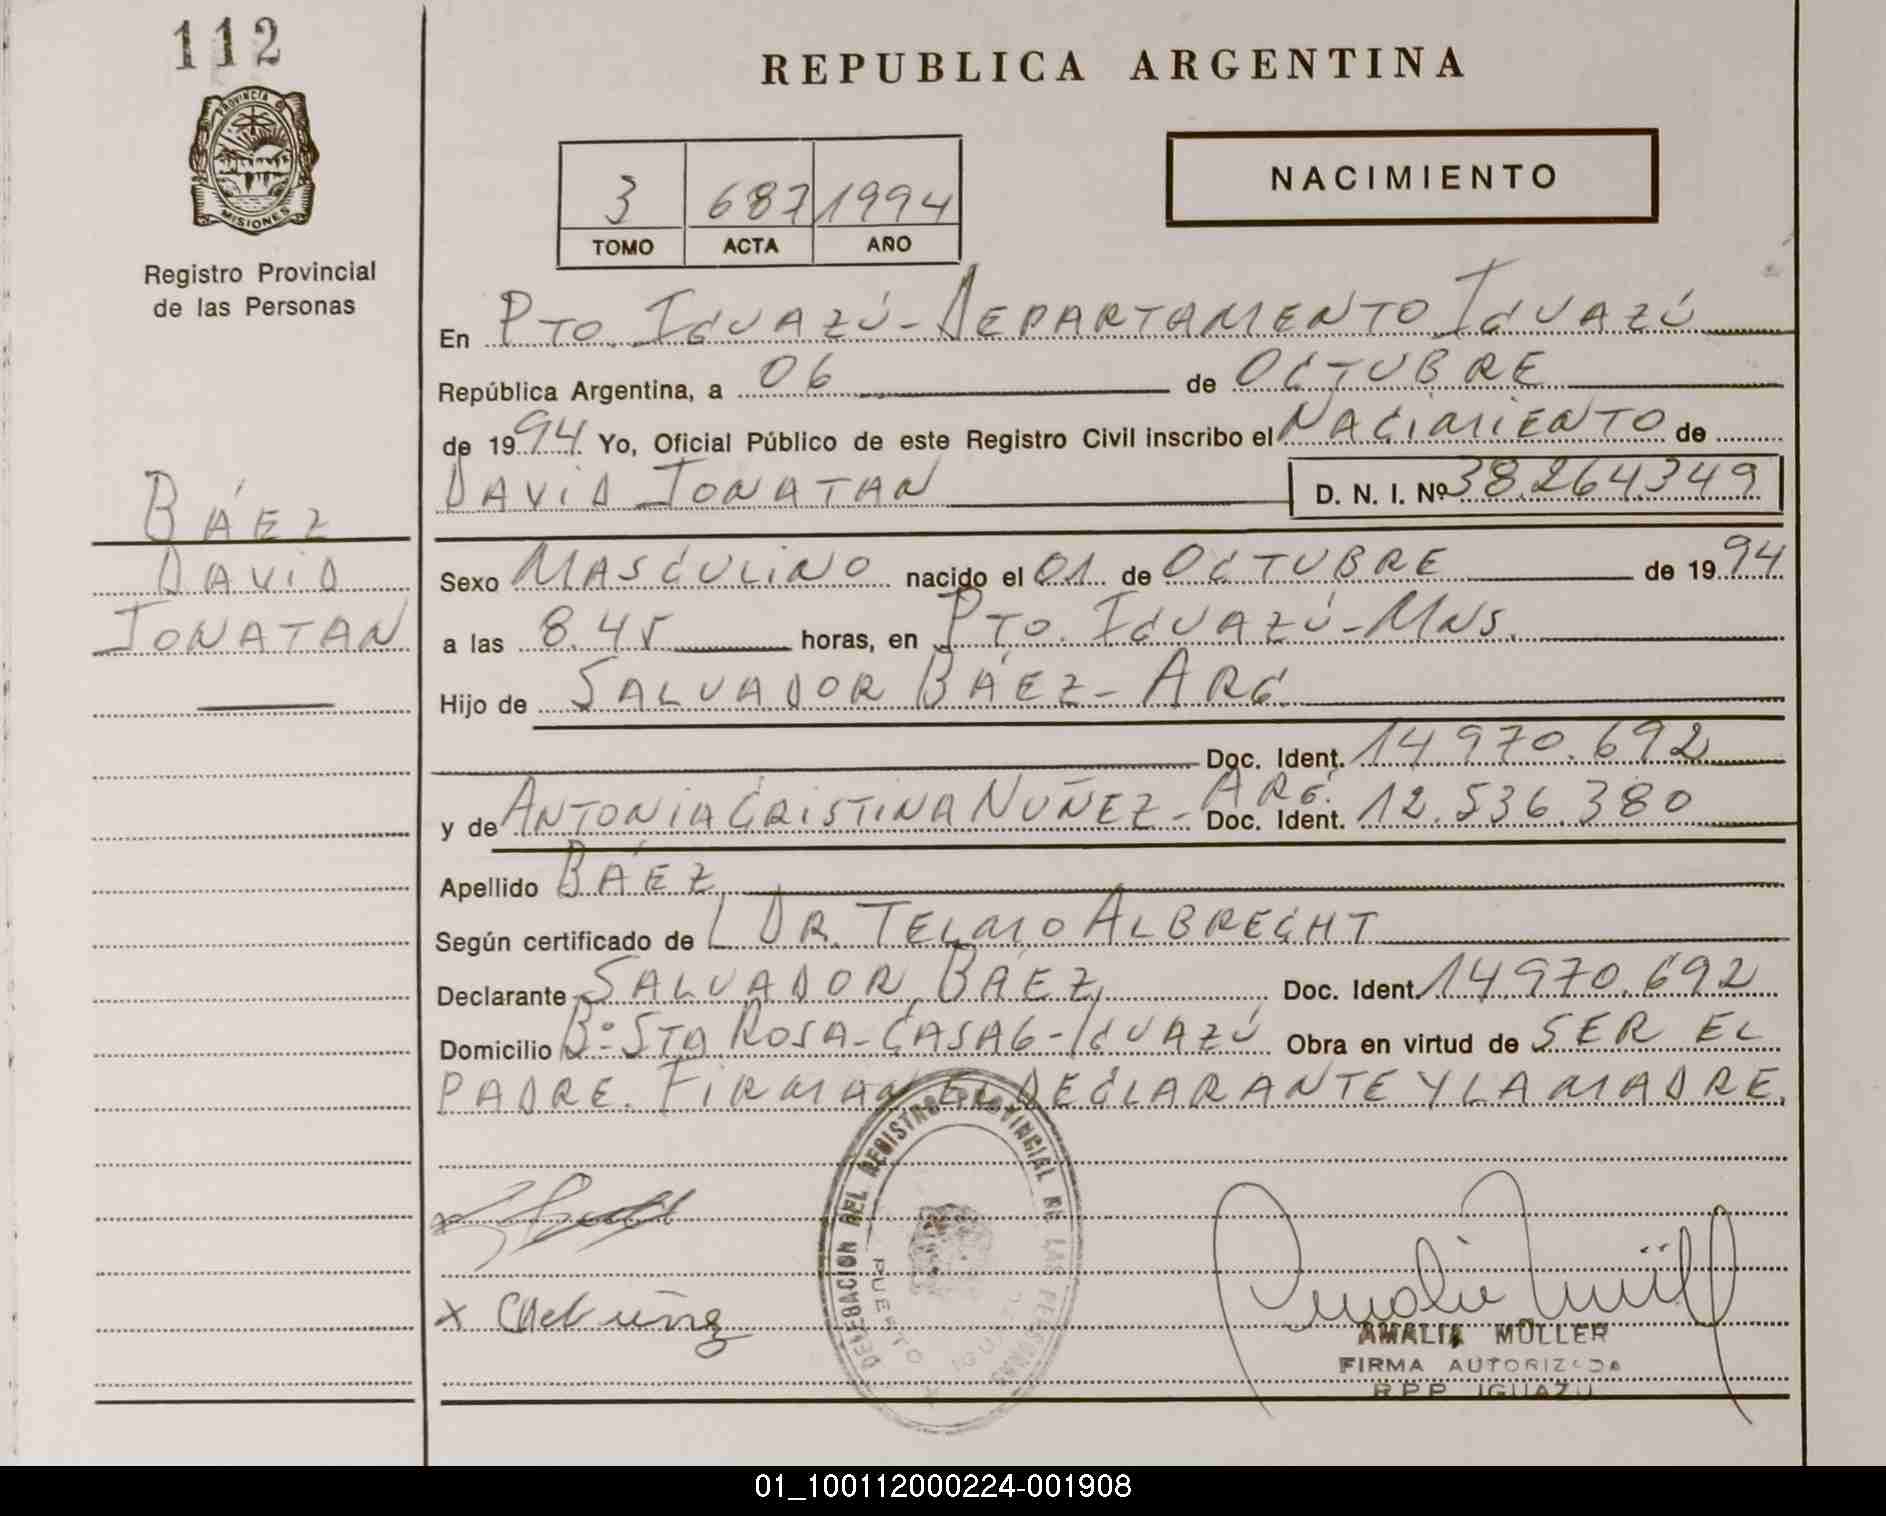 112
PROVINCIA DE
MISIONES
Registro Provincial
de las Personas
BÁEZ
DAVID
JONATAN
REPUBLICA ARGENTINA
3 687 1994
TOMO ACTA AÑO
NACIMIENTO
En PTO. IGUAZÚ - DEPARTAMENTO IGUAZÚ
República Argentina, a 06 de OCTUBRE
de 1994 Yo, Oficial Público de este Registro Civil inscribo el NACIMIENTO de
DAVID JONATAN D. N. I. Nº 38.264.349
Sexo MASCULINO nacido el 01 de OCTUBRE de 1994
a las 8.45 horas, en PTO. IGUAZÚ - MNS.
Hijo de SALVADOR BÁEZ - ARG.
Doc. Ident. 14.970.692
y de ANTONIA CRISTINA NUÑEZ - ARG. Doc. Ident. 12.536.380
Apellido BÁEZ
Según certificado de DR. TELMO ALBRECHT
Declarante SALVADOR BÁEZ, Doc. Ident. 14.970.692
Domicilio Bº STA ROSA - CASA 6 - IGUAZÚ Obra en virtud de SER EL
PADRE. FIRMAN EL DECLARANTE Y LA MADRE.
DELEGACION DEL REGISTRO PROVINCIAL DE LAS PERSONAS
PUERTO IGUAZU
X
AMALIA MÜLLER
FIRMA AUTORIZADA
R.P.P. IGUAZU
01_100112000224-001908